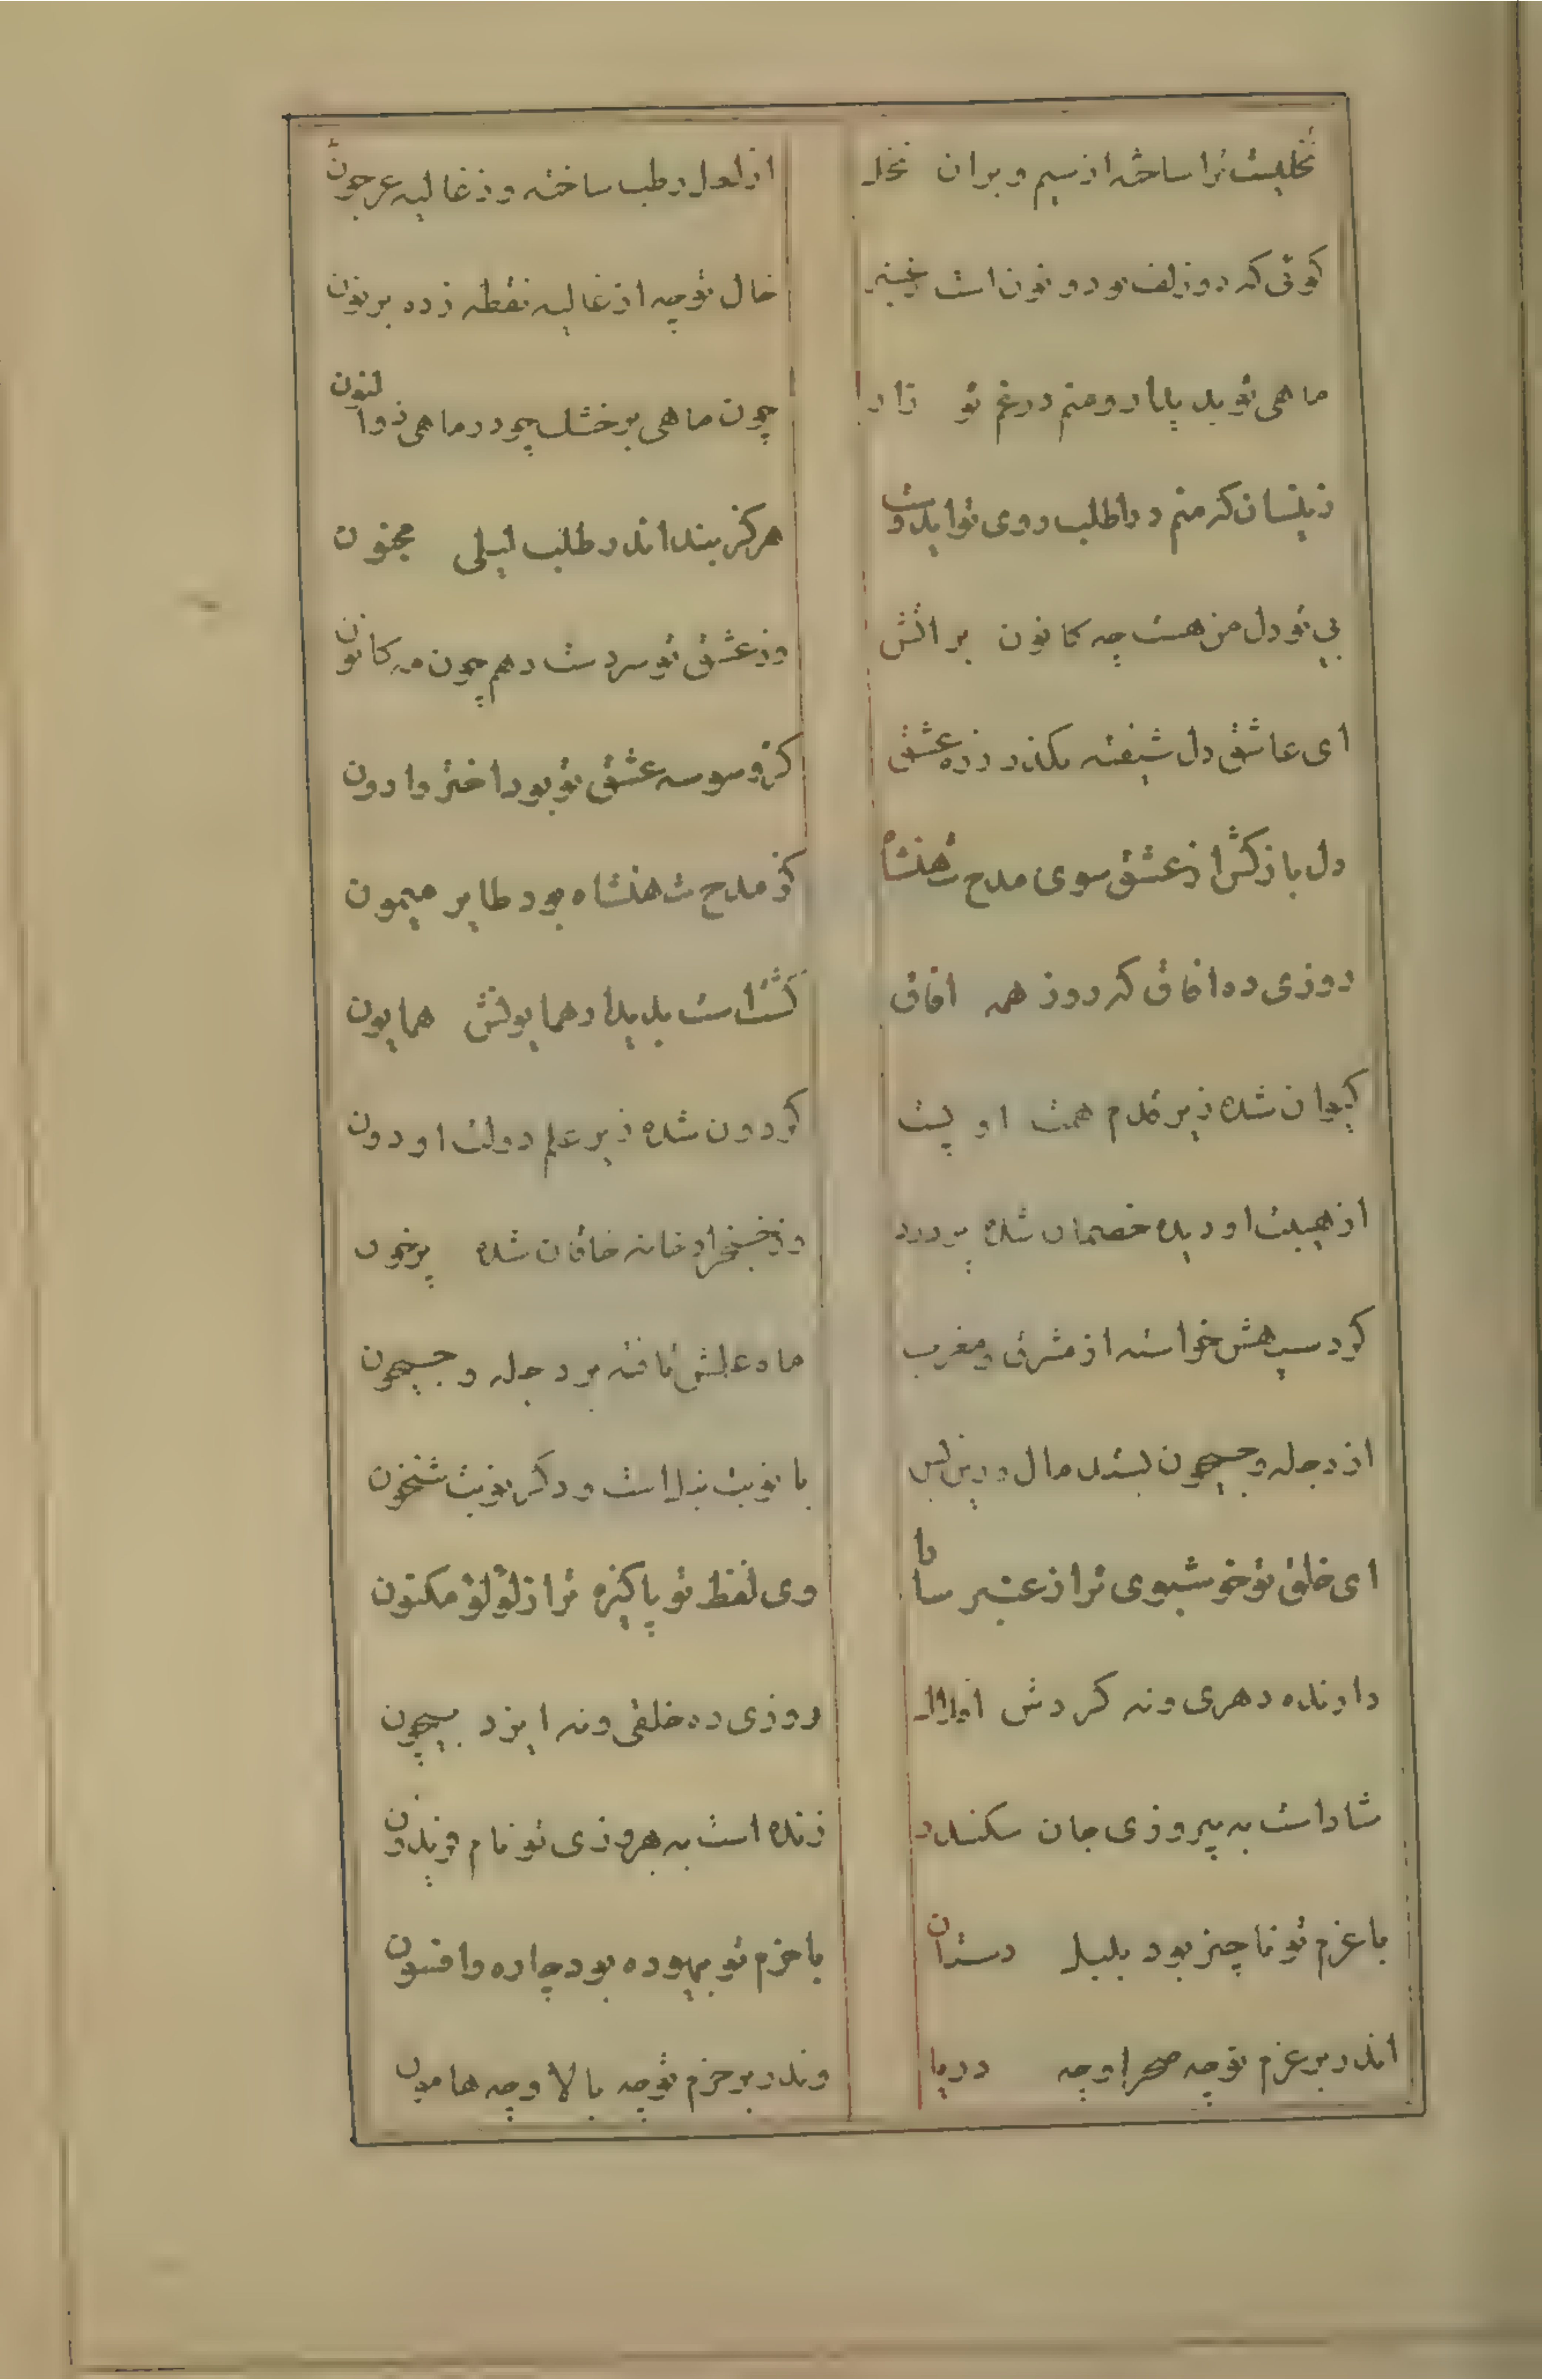 نخلیست ترا ساخته از سیم و بران نخل
از لعل رطب ساخته وز غالیه عرجون
کوئی که دو زلف تو دو نون است ز عنبر
خال تو چه از غالیه نقطه زده بر نون
ماهی تو بدیدار و منم در غم تو زار
چون ماهی بر خشک چو در ماهی ذوالنون
زینسان که منم در طلب روی تو ایدوست
هرکز نبد اندر طلب لیلی مجنون
بی تو دل من هست چه کانون بر اتش
وز عشق تو سردست دهم چون مه کانون
ای عاشق دل شیفته بکذر ز ره عشق
کز وسوسه عشق تو بود اختر وارون
دل باز کش از عشق سوی مدح شهنشاه
کز مدح شهنشاه بود طایر میمون
روزی ده افاق که روز همه افاق
کشتست بدیدار همایونش همایون
کیوان شده زیر قدم همت او پست
کردون شده زیر علم دولت او دون
از هیبت او دیده خصمان شده پر درد
وز خنجر او خانه خاقان شده پرخون
کرد سپهش خواسته از مشرق و مغرب
ماه علمش تافته بر دجله و جیحون
از دجله و جیحون بستد مال و زین پس
یا نوبت نیل است و دکر نوبت سیحون
ای خلق تو خوشبوی تر از عنبر سارا
وی لفظ تو پاکیزه تر از لؤلؤ مکنون
دارنده دهری و نه کردش افلاک
روزی ده خلقی و نه ایزد بیچون
شاد است به پیروزی جان سکندر
زنده است به بهروزی تو نام فریدون
با عزم تو ناچیز بود بلبل دستان
با حزم تو بیهوده بود چاره و افسون
اندر بر عزم تو چه صحرا و چه دریا
وندر بر حزم تو چه بالا و چه هامون